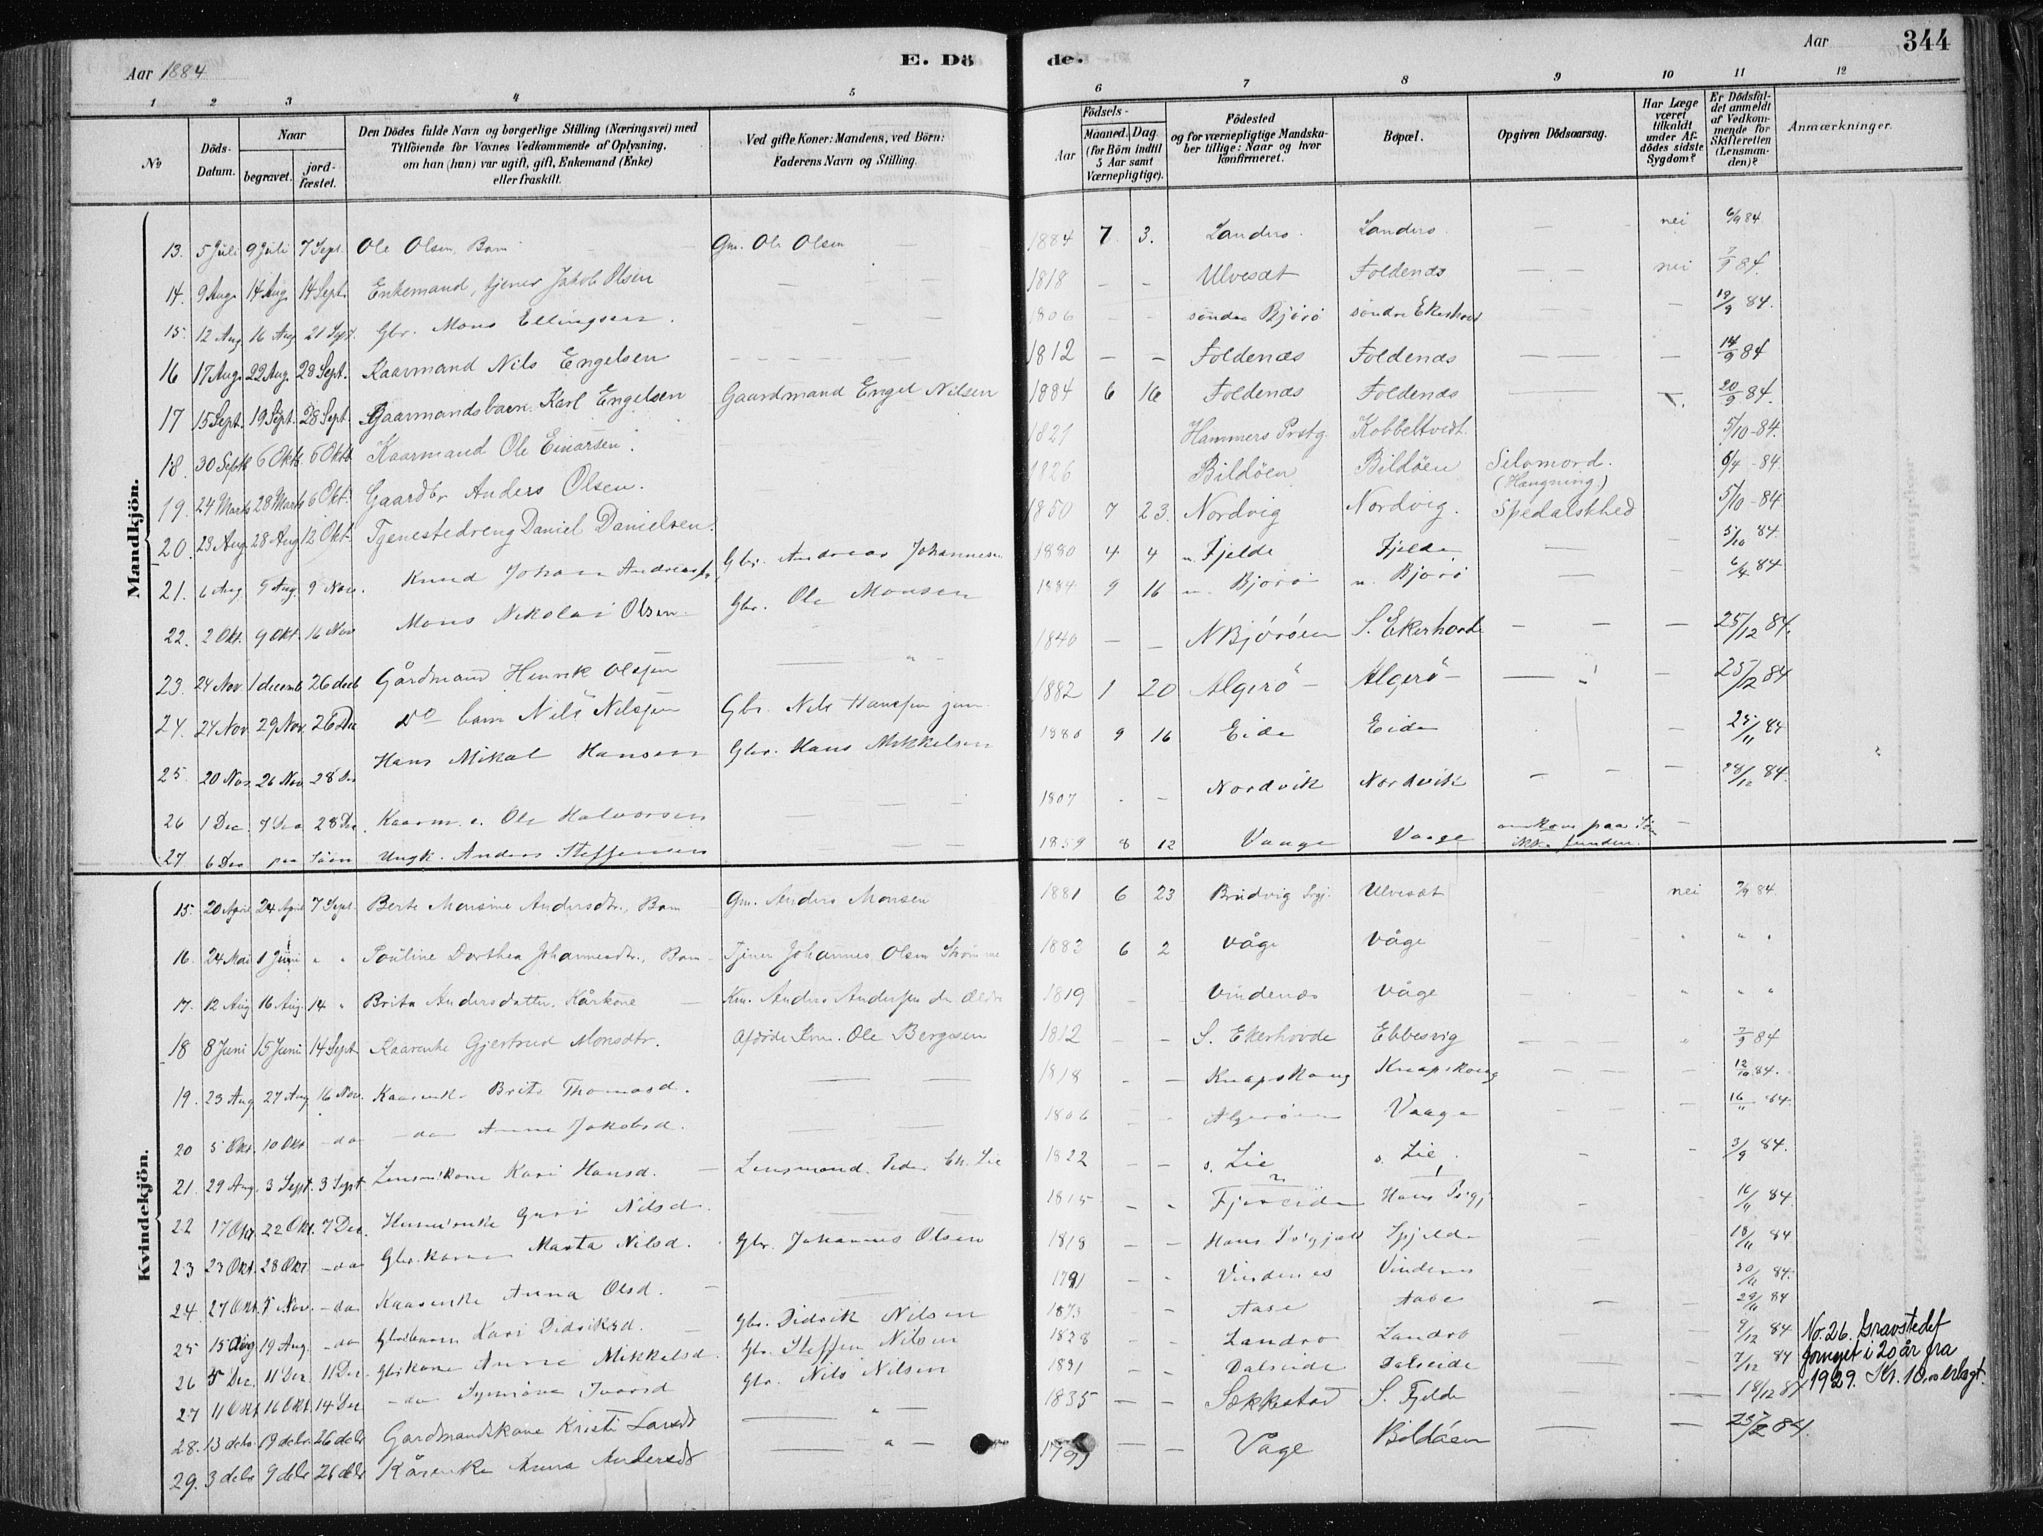 Aar 1884
E. Dö
de.
Aar
344
1 2 3 4 5 6 7 8 9 10 11 12
No
Döds-Datum.
Naar
begravet.
jord-fæstet.
Den Dödes fulde Navn og borgerlige Stilling (Næringsvei) med
Tilföiende for Voxnes Vedkommende af Oplysning,
om han (hun) var ugift, gift, Enkemand (Enke)
eller fraskilt.
Ved gifte Koner: Mandens, ved Börn:
Faderens Navn og Stilling.
Födsels-
Aar
Maaned. Dag
(for Börn indtil
5 Aar samt
Værnepligtige).
Födested
og for værnepligtige Mandska-
ber tillige: Naar og hvor
konfirmeret.
Bopæl.
Opgiven Dödsaarsag.
Har Læge
været
tilkaldt
under Af-
dödes sidste
Sygdom?
Er Dödsfal-
det anmeldt
af Vedkom-
mende for
Skifteretten
(Lensman-
den)?
Anmærkninger.
Mandkjön.
13. 5 Juli 9 Juli 7 Sept. Ole Olsen, Barn Gm. Ole Olsen 1884 7 3. Landro Landro — nei 6/9 84
14. 9 Aug. 14 Aug. 14 Sept. Enkemand, tjener Jakob Olsen — — 1818 — — Ulvesæt Foldenæs — — nei 7/9 84.
15. 12 Aug 16 Aug 21 Sept. Gbr. Mons Ellingsen. — — 1806 — — søndre Bjørø søndre Ekerhovd 19/9 84.
16 17 Aug. 22 Aug. 28 Sept. Kaarmand Nils Engelsen — — 1812 — — Foldenæs Foldenæs — — — 14/9 84
17 15 Sept. 19 Sept. 28 Sept. Gaarmandsbarn Karl Engelsen Gaardmand Engel Nilsen 1884 6 16 Foldenæs Foldenæs — — 20/9 84.
18. 30 Septb 6 Oktb 6 Oktb Kaarmand Ole Einarsen. 1821 Hammers Prstg. Kobbeltvedt. 5/10-84.
19. 24 Marts 28 Marts 6 Okt. Gaardbr Anders Olsen. 1826 Bildöen Bildöen Selvmord. (Hængning.) 6/4-84.
20. 23 Aug. 28 Aug 12 Okt. Tjenestedreng Daniel Danielsen. 1850 7 23. Nordvig Nordvig. Spedalskhed 5/10-84
21. 6 Aug 9 Aug. 9 Nov. Knud Johan Gbr. Andreas Johannesen 1880 4 4 n. Fjelde Fjelde — — 5/10 84.
22. 2 Okt. 9 Okt. 16 Nov Mons Nikolai Olsen Gbr. Ole Monsen 1884 9 16 n. Bjørø n. Bjørø — — 84
23. 24 Nov. 1 decemb 26 decb Gårdmand Henrik Olsen — " — 1840 — — N Bjórøen S. Ekerhovde — — — 25/12 84.
24. 24 Nov. 29 Nov. 26 De do barn Nils Nilssen Gbr. Nils Hanssen jun. 1882 1 20 Algerö — Algerö — — — 25/12 84
25. 20 Nov. 26 Nov. 28 Des Hans Mikal Hansen Gbr. Hans Mikkelsen 1880 9 16 Eide Eide 84
26 1 Dec. 7 Dec 28 Dec Kaarm. Ole Halvorsen — — 1807 — — Nordvik Nordvik — — — 28/12 84.
27. 6 Dec paa Søen Ungk. Anders Steffensen — 1859 8 12 Vaage Vaage omkom paa Søen ikke funden.
Kvindekjön.
15. 20 April 24 April 7 Sept. Berte Monsine Andersdtr., Barn Gm. Anders Monsen 1881 6 23 Brudvig Prgj. Ulvesæt nei 7/9 84
16. 24 Mai 1 Juni " " Pouline Dorthea Johannesdtr., Barn Tjener Johannes Olsen Strømme 1883 6 2 Våge Våge — " " "
17. 12 Aug 16 Aug. 14 " Brita Andersdatter, Kårkone — Km. Anders Andersen 1819 — — Vindenæs Våge — — " " "
18 8 Juni 15 Juni 14 Sept. Kaarenke Gjertrud Monsdtr. Afdöde Ole Bergesen 1812 — — S. Ekerhovde Ebbesvig — — " 7/9 84
19. 23 Aug 27 Aug 16 Nov. Kaarenke Brita Thomasd. — — 1818 — — Knapskoug Knapskoug — — — 12/10 84.
20 5 Okt. 10 Okt — do — do — Anne Jakobsd. — — 1806 — — Algerøen Vaage — — — 16/11 84.
21. 29 Aug. 3 Sept. 3 Sept Lensm.kone Kari Hansd. — Lensmand Peder Chr. Lie 1822 — — s. Lie s. Lie. — — — 3/9 84.
22 17 Okt 22 Okt. 7 Dec. Guri Nilsd. — — 1815 — — Fjæreide Hans Prgj. — — 84
23 23 Okt. 28 Okt — do Gbr.kone Marta Nilsd. Gbr. Johannes Olsen 1818 — — Hans Prgjæld Spjeld — — 18/11 84
24. 27 Okt. 5 Nov. — do Kaarenke Anna Olsd. — 1791 — — Vindenes Vindenes 30/11 84.
25 15 Aug 19 Aug. — do Gbrs.barn Kari Didriksd. Gbr. Didrik Nilsen 1873 — — Aase Aase — — 29/11 84
26 5 Dec. 11 Dec 11 Dec. Gbr.kone Anne Mikkelsd. Gbr. Steffen Nilsen 1828 — — Landro Landro 9/12 84
27. 11 Okt. 16 Okt. 14 Dec — do — Synnöve Ivarsd Gbr. Nils Nilsen 1831 — — Dalseide Dalseide 7/12 84
28. 13 decb. 19 decb. 26 decb Gardmandskone Kristi Larsdt — " — 1835 — — Sekkestad S. Fjelde — — 84
29. 3 decb 9 decb 26 decb Kårenke Anna Andersdt — " — — — Våge Bildöen — — 84.
No. 26. Gravstedet
fornyet i 20 år fra
1929. Kr. 10.00 erlagt.